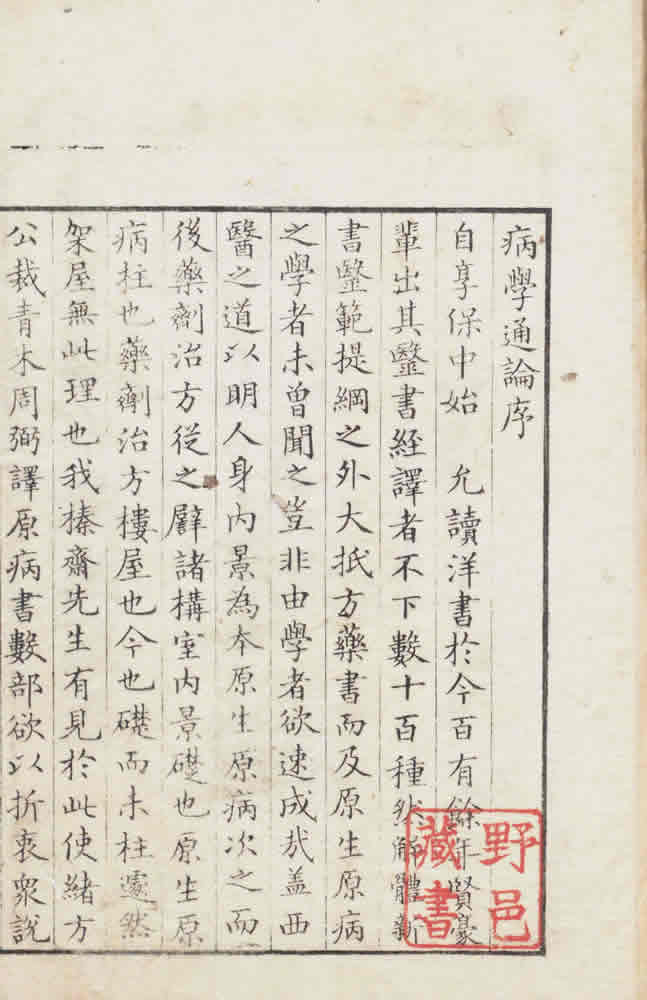 病學通論序
自享保中始　允讀洋書於今百有餘年賢豪
輩出其毉書經譯者不下數十百種然解體新
書毉範提綱之外大抵方藥書而及原生原病
之學者未曾聞之豈非由學者欲速成哉盖西
醫之道以明人身内景為夲原生原病次之而
後藥劑治方從之譬諸構室内景礎也原生原
病柱也藥劑治方樓屋也今也礎而未柱遽然
架屋無此理也我榛齋先生有見於此使緒方
公裁青木周弼譯原病書數部欲以折衷衆說
野邑
藏書